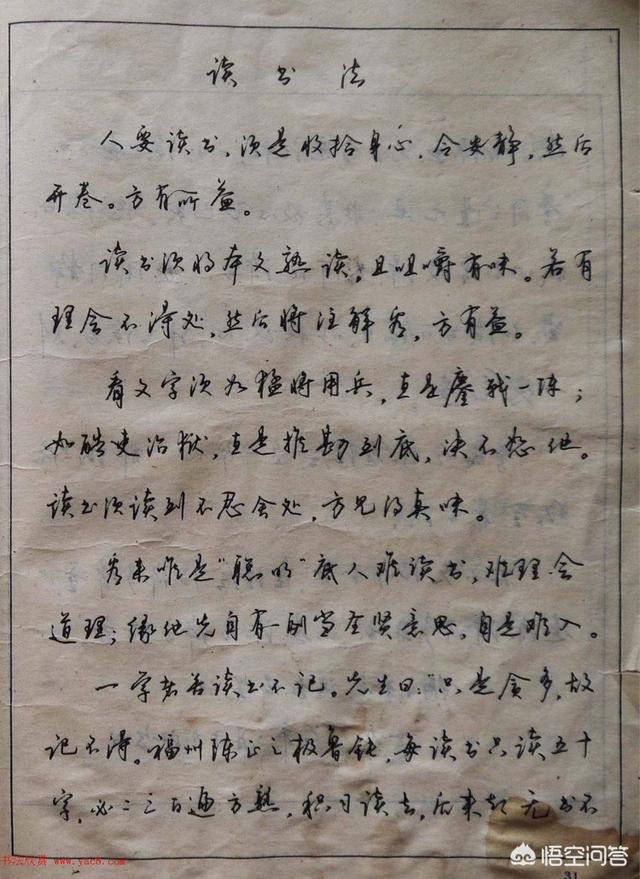 读书法
人要读书,须是收拾身心,令安静,然后
开卷。方有所益。
读书须将本文熟读,且咀嚼有味。若有
理会不得处,然后将注解看,方有益。
看文字须如猛将用兵,直是鏖战一阵;
如酷吏治狱,直是推勘到底,决不恕他。
读书须读到不忍舍处,方见得真味。
看来唯是“聪明”底人难读书,难理会
道理;缘他先自有一副当圣贤意思,自是难入。
一学者苦读书不记。先生曰:“只是贪多,故
记不得。福州陈正之极鲁钝,每读书只读五十
字,必二三百遍方熟,积日读去,后来却无书不
31
书法欣赏 www.yac8.com
悟空问答